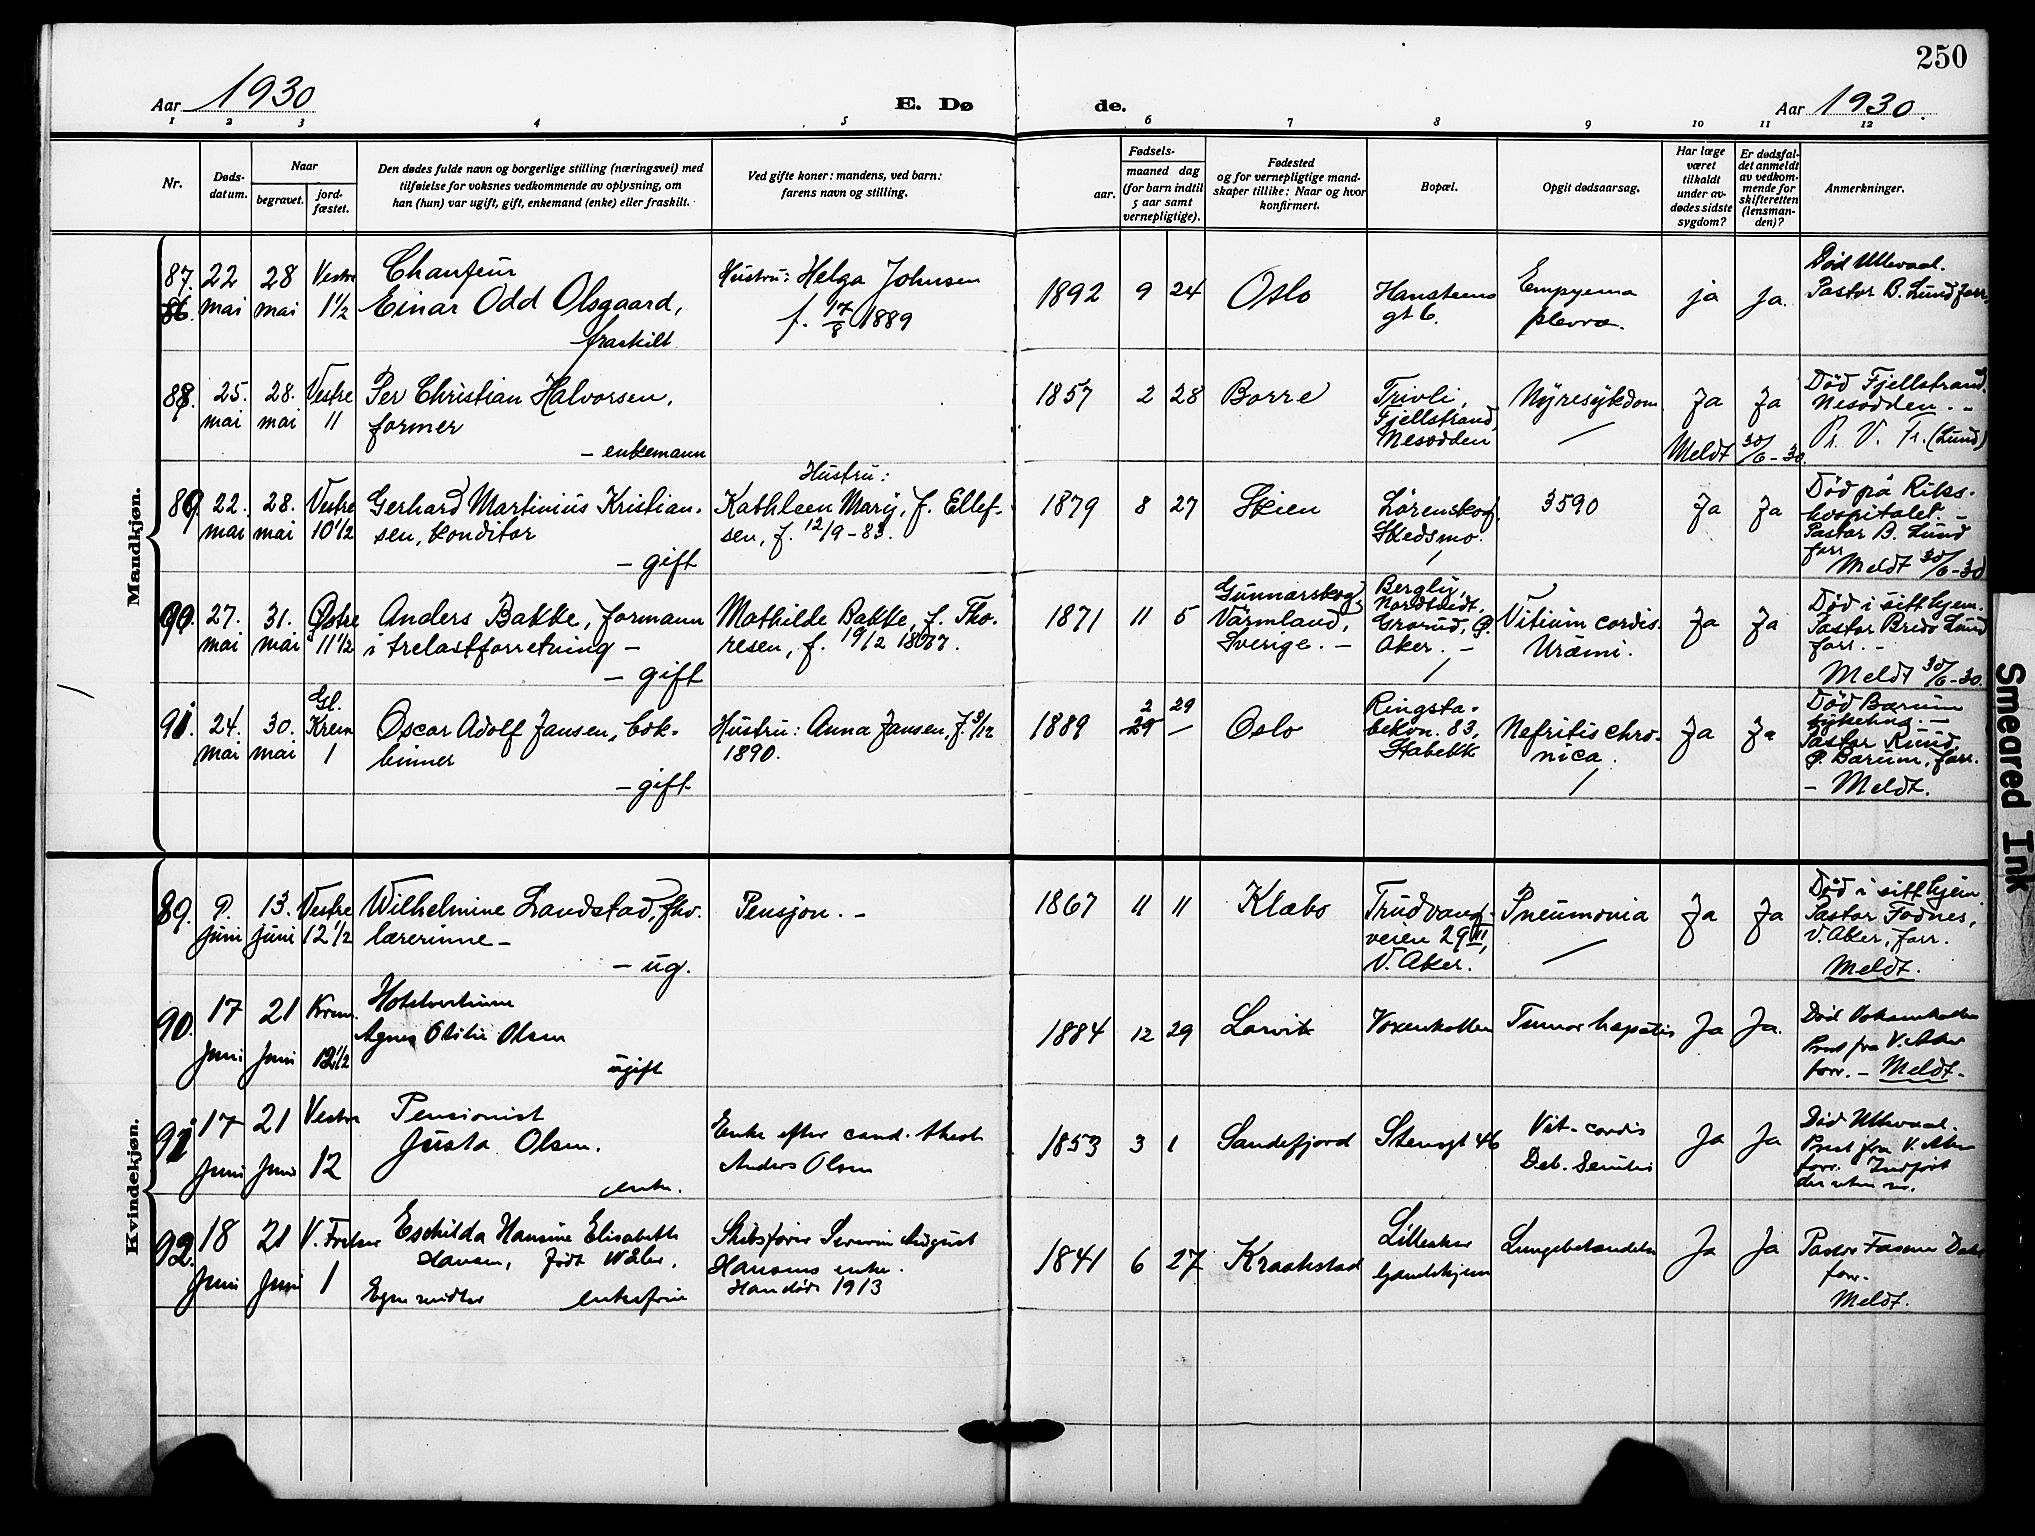 250
Aar 1930
E. Dø
de.
Aar 1930.
1 2 3 4 5 6 7 8 9 10 11 12
Nr.
Døds-
datum.
Naar
begravet.
jord-
fæstet.
Den dødes fulde navn og borgerlige stilling (næringsvei) med
tilføielse for voksnes vedkommende av oplysning, om
han (hun) var ugift, gift, enkemand (enke) eller fraskilt.
Ved gifte koner: mandens, ved barn:
farens navn og stilling.
Fødsels-
aar.
maaned dag
(for barn indtil
5 aar samt
vernepligtige).
Fødested
og for vernepligtige mand-
skaper tillike: Naar og hvor
konfirmert.
Bopæl.
Opgit dødsaarsag.
Har læge
været
tilkaldt
under av-
dødes sidste
sygdom?
Er dødsfal-
det anmeldt
av vedkom-
mende for
skifteretten
(lensman-
den)?
Anmerkninger.
Mandkjøn.
87.
86.
22
mai
28
mai
Vestre
1½
Chauffeur
Einar Odd Olsgaard,
fraskilt
Hustru: Helga Johnsen
f. 17/8 1889
1892 9 24
Oslo
Hansteens
gt 6.
Empyema
plevræ.
ja
Ja.
Død Ullevaal.
Pastor B. Lund forr.
88.
25.
mai
28.
mai
Vestre
11
Per Christian Halvorsen,
former
- enkemann
1857 2 28
Borre
Trivli,
Fjellstrand,
Nesodden
Nyresykdom
Ja
Ja
Meldt 30/6-30.
Død Fjellstrand,
Nesodden. -
Pr. V. Fr. (Lund)
89.
22.
mai
28.
mai
Vestre
10½
Gerhard Martinius Kristian-
sen, konditor
- gift
Hustru:
Kathleen Mary, f. Ellef-
sen, f. 12/9-83.
1879 8 27
Skien
Lørenskog,
Skedsmo.
3590
Ja
Ja
Død på Riks-
hospitalet. -
Pastor B. Lund
forr.
Meldt 30/6-30
90.
27.
mai
31.
mai
Østre
11½
Anders Bakke, formann
i trelastforretning -
- gift
Mathilde Bakke, f. Tho-
resen, f. 19/2 1877.
1871 11 5
Gunnarskog,
Värmland,
Sverige. -
Bergly,
Nordtvedt,
Grorud, Ø.
Aker. -
Vitium cordis.
Urämi.
Ja
Ja
Død i sitt hjem.
Pastor Bredo Lund
forr. -
Meldt 30/6-30.
91.
24.
mai
30.
mai
Gl.
Krem
1
Oscar Adolf Jansen, bok-
binner
- gift
Hustru: Anna Jansen, f. 9/12
1890.
1889 2 29
29 -
Oslo
Ringsta-
bekvn. 83,
Stabekk
Nefritis chro-
nica.
Ja
Ja
Død Bærum
sykehus. -
Pastor Ruud,
Ø. Bærum, forr.
- Meldt.
Kvindekjøn.
89.
9.
juni
13.
juni
Vestre
12½
Wilhelmine Landstad, fhv.
lærerinne -
- ug.
Pensjon. -
1867 11 11
Klæbo
Trudvang-
veien 29 III,
V. Aker.
Pneumonia
Ja
Ja
Død i sitt hjem
Pastor Fodnes,
V. Aker, forr.
Meldt.
90.
17
Juni
21
Juni
Krem.
12½
Hotelvertinne
Agnes Otilie Olsen
ugift
1884 12 29
Larvik
Voxenkollen
Tumor hepatis
Ja
Ja.
Død Voksenkollen
Prest fra V. Aker
forr. - Meldt.
91
17
Juni
21
Juni
Vestre
12
Pensionist
Justa Olsen.
enke.
Enke efter cand. theol.
Anders Olsen
1853 3 1
Sandefjord
Stensgt 46
Vit. cordis
Deb. Senilis
Ja
Ja
Død Ullevaal.
Prest fra V. Aker
forr. Indført
92.
18
Juni
21
Juni
V. Frelser
1
Eschilda Hansine Elisabeth
Hansen, født Wåler.
Egne midler enkefrue
Skibsfører Severin August
Hansens enke.
Han døde 1913
1841 6 27
Kraakstad
Lilleaker
Gamlehjem
Lungebetændelse
Ja
Ja
Pastor
forr.
Meldt.
Smeared Ink